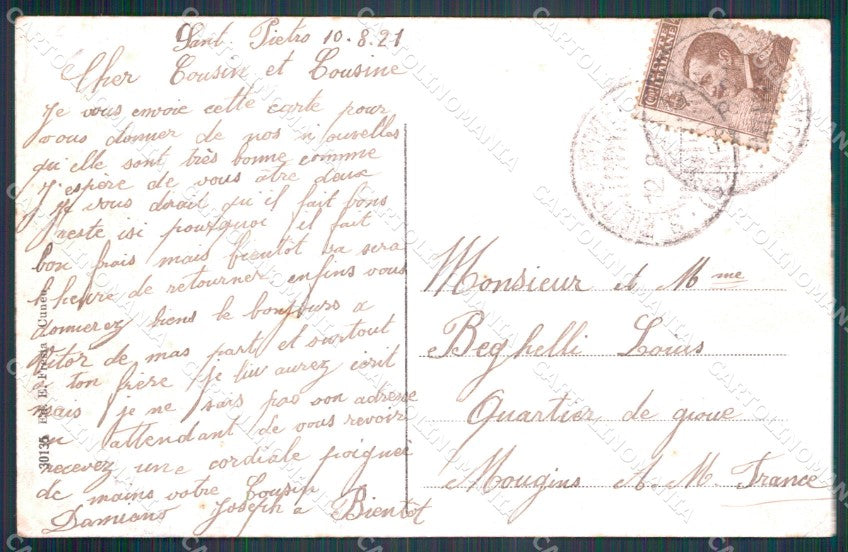 Sant Pietro 10.8.21
Cher Cousin et Cousine
Je vous envoie cette carte pour
vous donner de nos nouvelles
qu'elle sont très bonne comme
J'espère de vous être deux
Je vous dirait qu'il fait bons
reste isi pourquoi il fait
bon frais mais bientot va sera
l heure de retourner enfins vous
donnerez biens le bonjours a
de mas part et surtout
a ton frère je lui aurez écrit
mais je ne sais pas son adresse
en attendant de vous revoir
recevez une cordiale poignee
de mains votre Cousin
Damiano Joseph a Bientot
30135 E. Fresia Cuneo
Monsieur et Mme
Beghelli Louis
Quartier de gioue
Mougins A. M. France
CARTOLINOMANIA